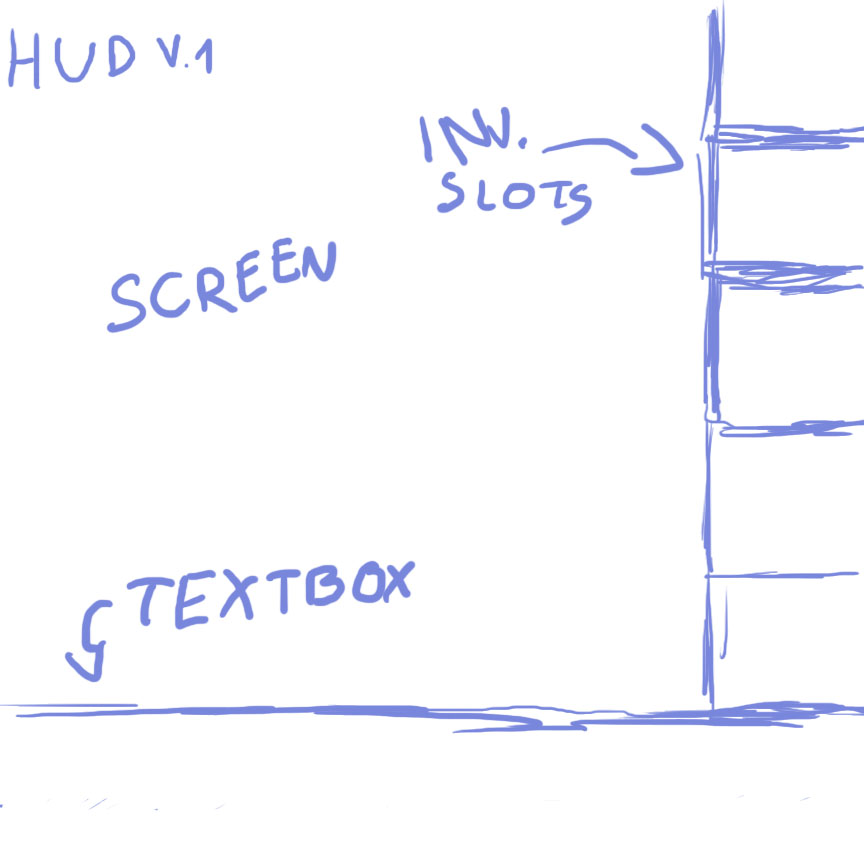 HUD V.1
INV.
SLOTS
SCREEN
TEXTBOX